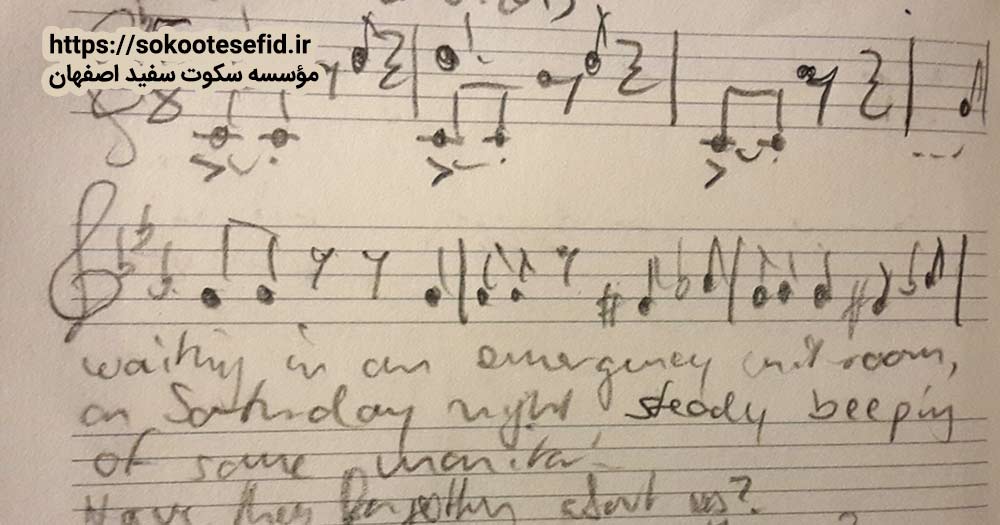 https://sokootesefid.ir
مؤسسه سکوت سفید اصفهان
waiting in an emergency unit room,
on Saturday night steady beeping
of some monitor
Have they forgotten about us?